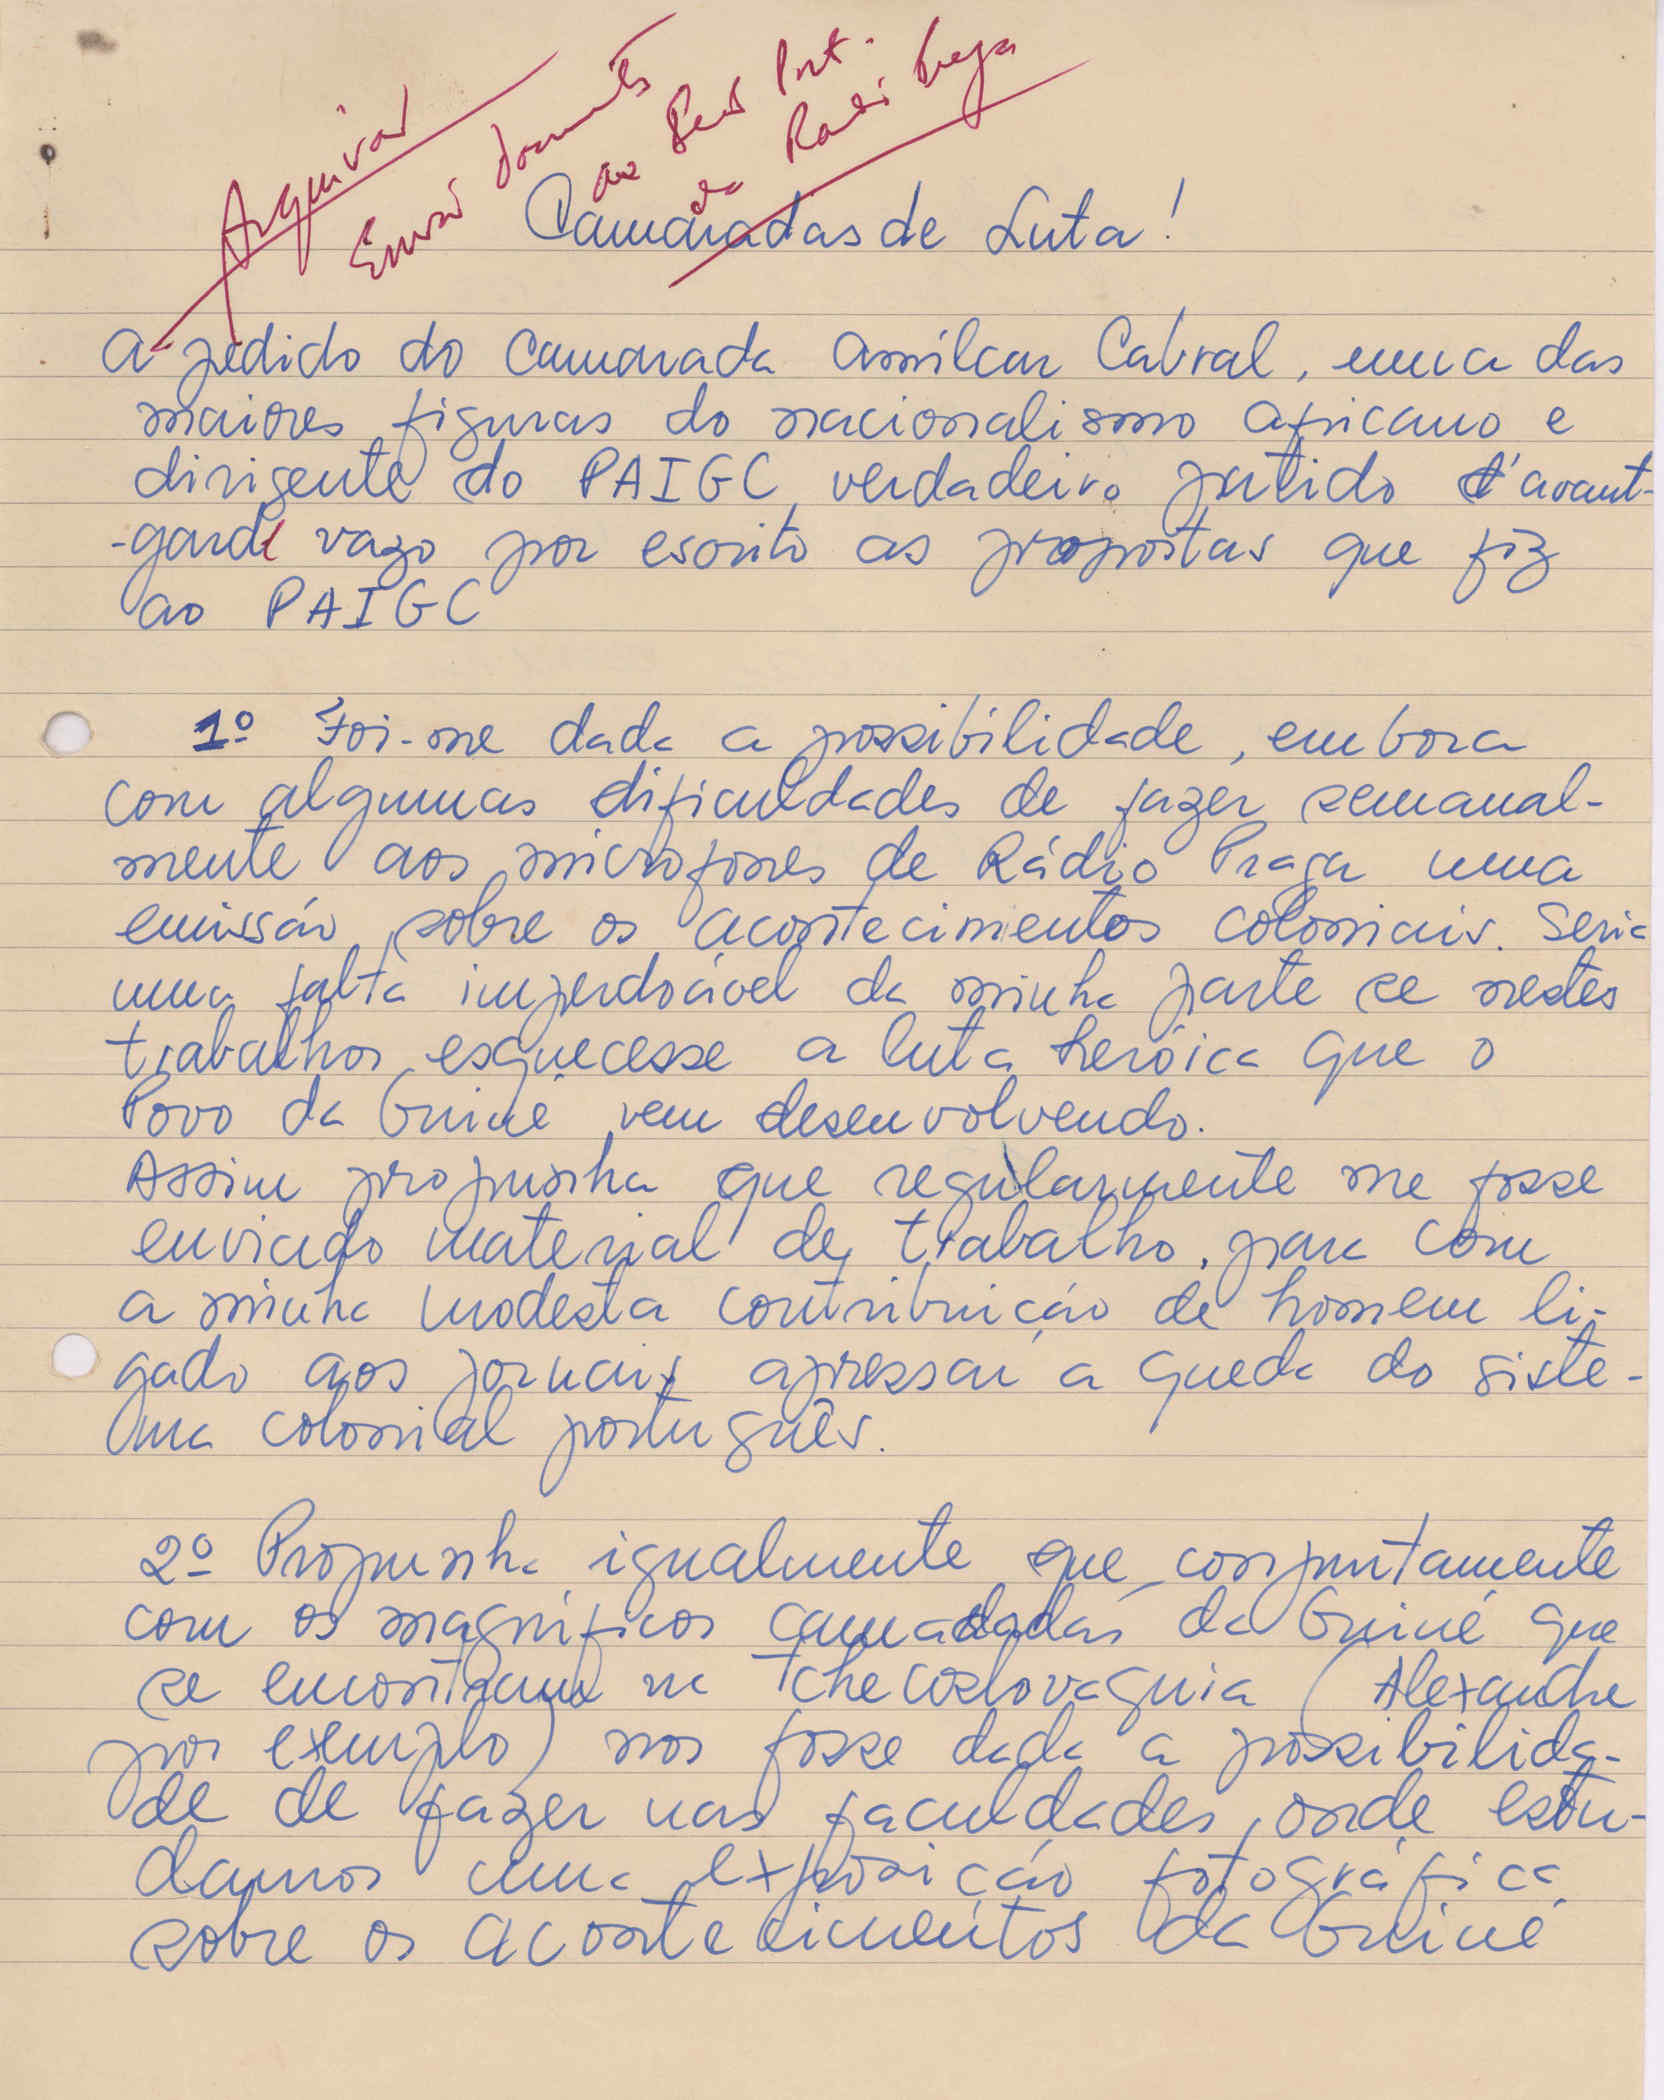 Arquivar
Enviar documentos
ao Port.
da Radio Praga
Camaradas de Luta!
A pedido do Camarada Amílcar Cabral, uma das
maiores figuras do nacionalismo africano e
dirigente do PAIGC, verdadeiro partido d'avant-
-garde vago por escrito as propostas que fiz
ao PAIGC
1º Foi-me dada a possibilidade, embora
com algumas dificuldades de fazer semanal-
mente aos microfones de Rádio Praga uma
emissão sobre os acontecimentos coloniais. Seria
uma falta imperdoável da minha parte se nestes
trabalhos esquecesse a luta heróica que o
Povo da Guiné vem desenvolvendo.
Assim propunha que regularmente me fosse
enviado material de trabalho, para com
a minha modesta contribuição de homem li-
gado aos jornais apressar a queda do siste-
ma colonial português.
2º Propunha igualmente que conjuntamente
com os magníficos camadadas da Guiné que
se encontram na Tchecoslovaquia (Alexandre
por exemplo) nos fosse dada a possibilida-
de de fazer nas faculdades, onde estu-
damos uma exposição fotográfica
sobre os acontecimentos da Guiné